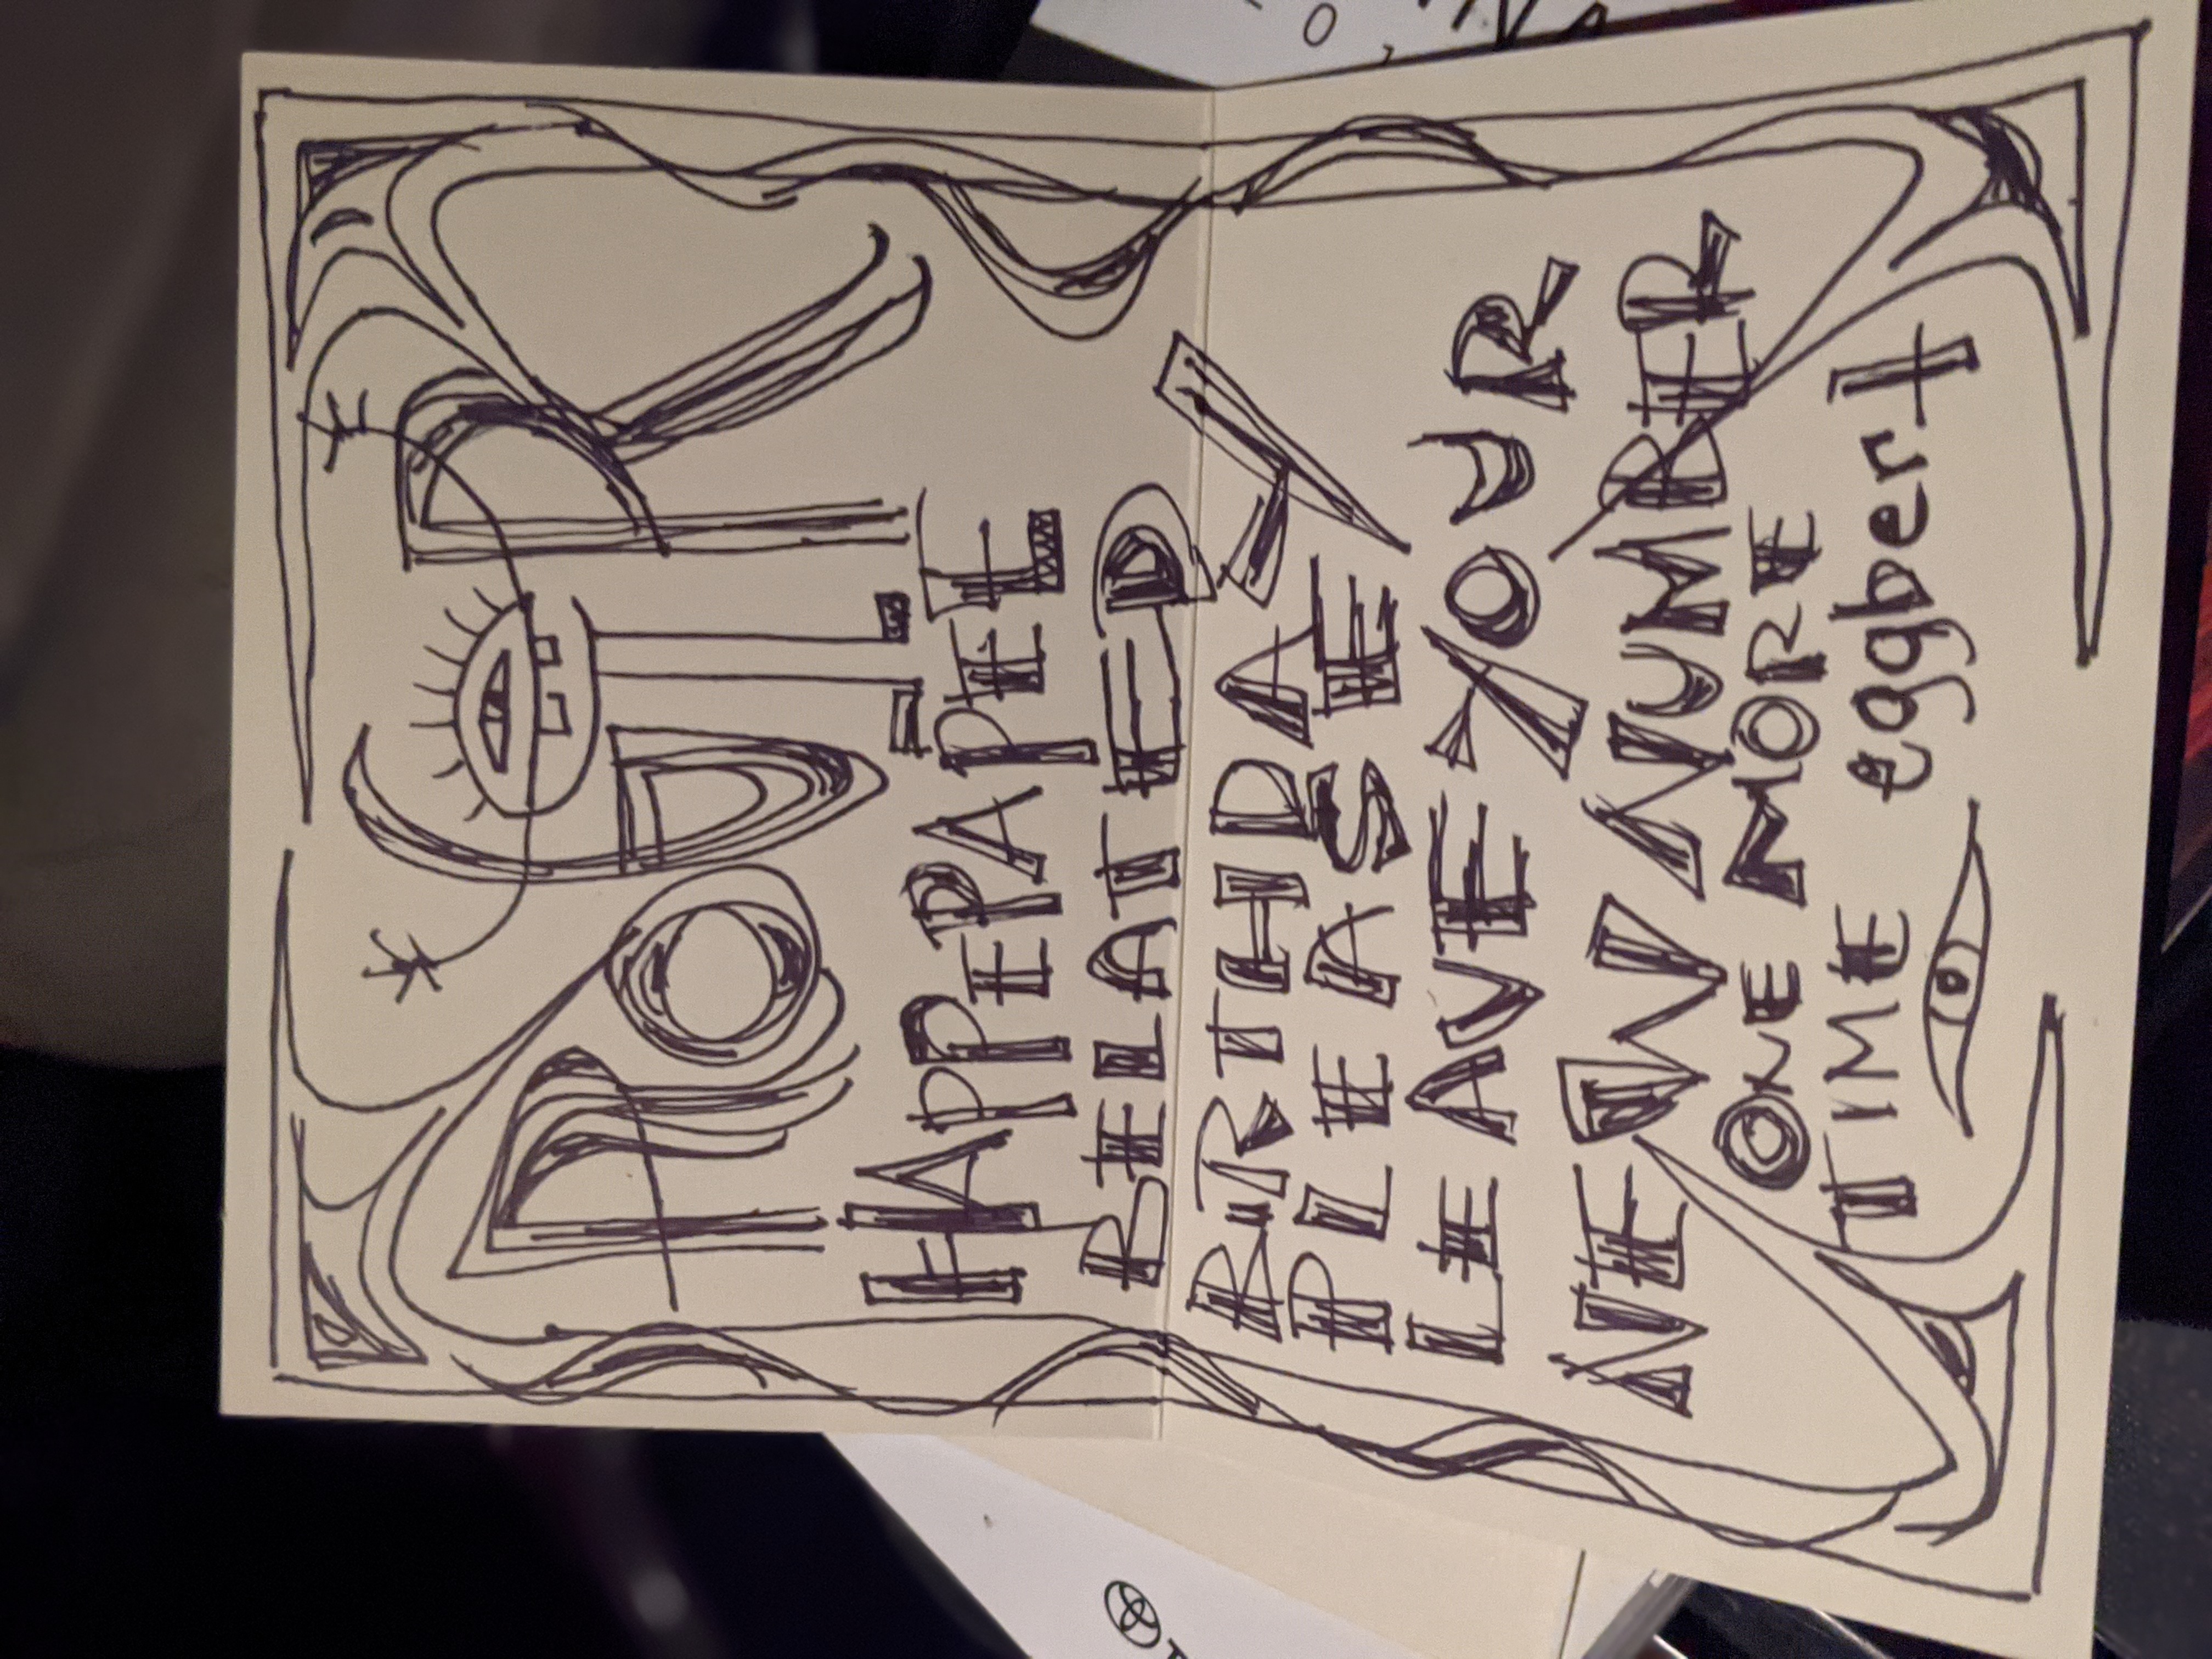 HAPPEPAPEE
BELATED
BIRTHDAY
PLEASE
LEAVE YOUR
NEW NUMBER
ONE MORE
TIME eggbert